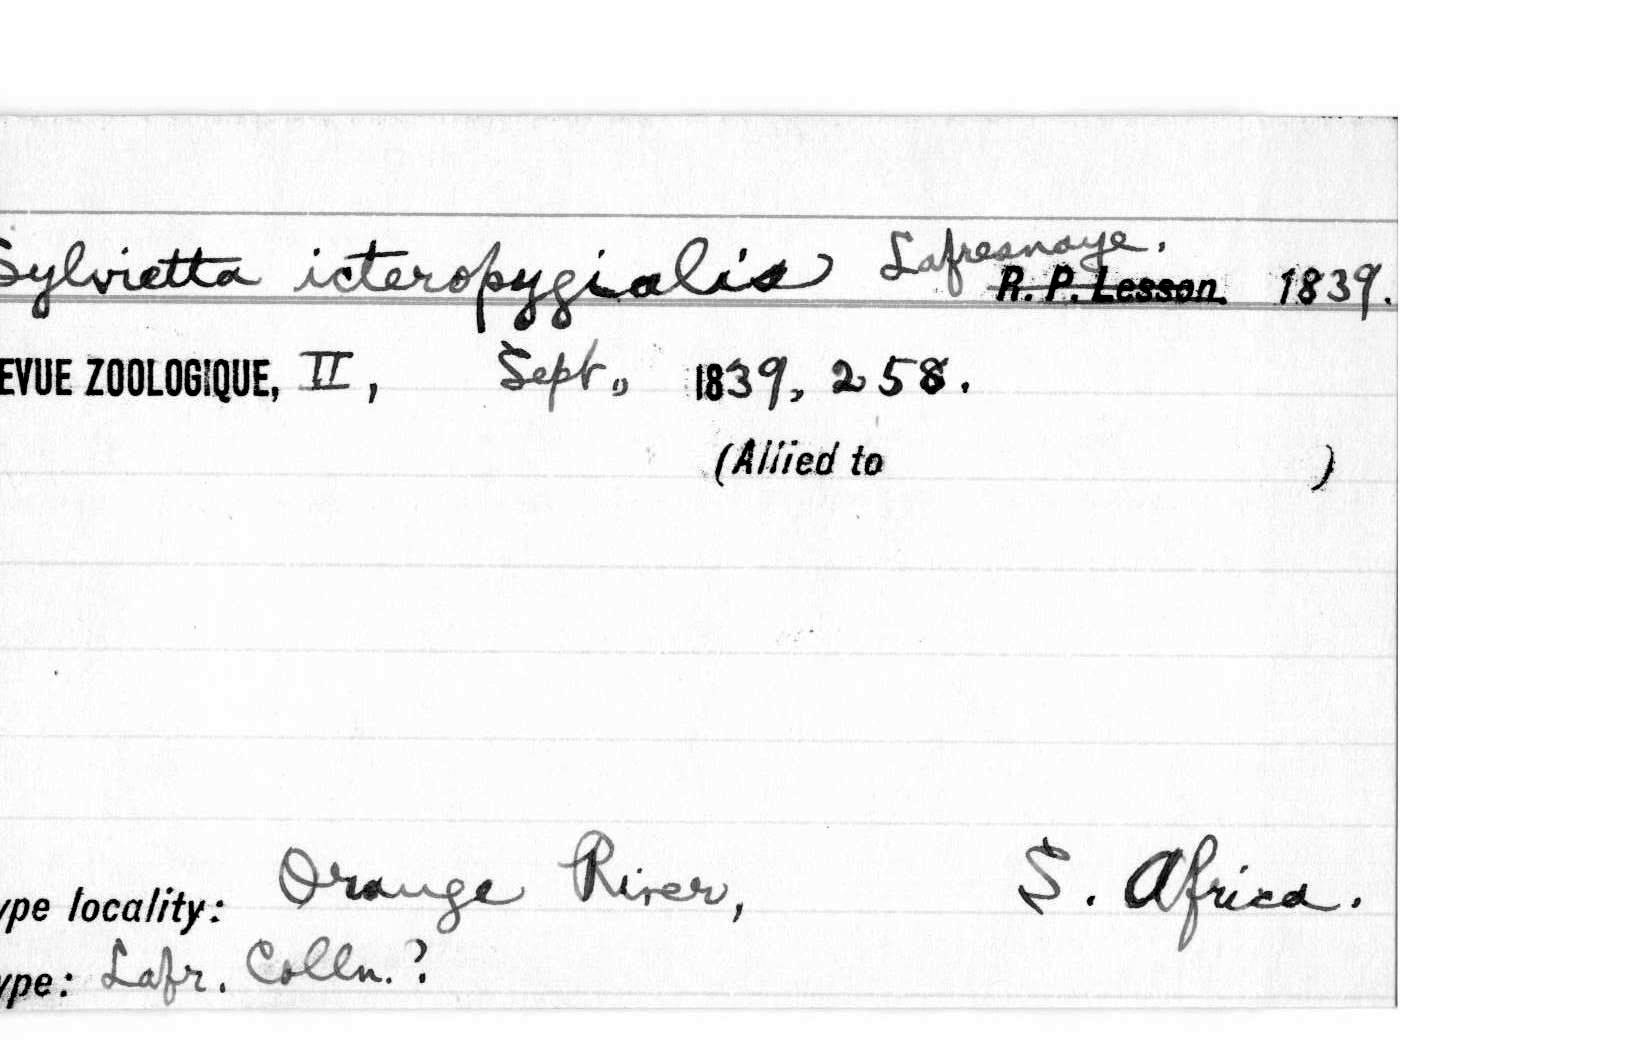 Sylvietta icteropygialis Lafresnaye.
R. P. Lesson. 1839.
EVUE ZOOLOGIQUE, II, Sept., 1839, 258.
(Allied to )
ype locality: Orange River, S. Africa.
ype: Lafr. Colln.?